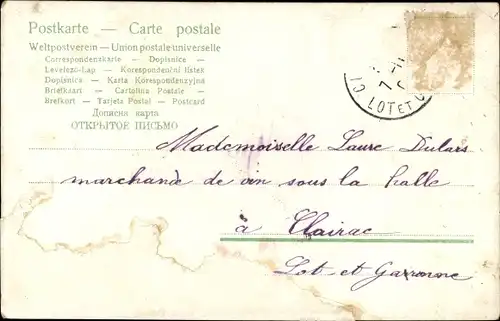 Postkarte — Carte postale
Weltpostverein — Union postale universelle
Correspondenzkarte — Dopisnice —
Levelezo-Lap — Korespondenční lístek
Dopisnica — Karta Korespondencyjna
Briefkaart — Cartolina Postale —
Brefkort — Tarjeta Postal — Postcard
Дописна карта
ОТКРЫТОЕ ПИСЬМО
LOT ET G
Mademoiselle Laure
marchande de vin sous la halle
à Clairac
Lot-et-Garonne